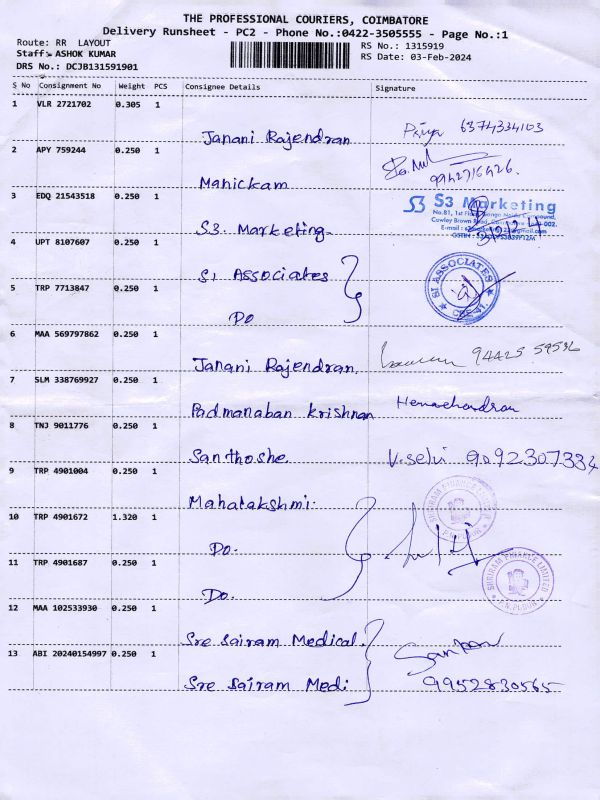 THE PROFESSIONAL COURIERS, COIMBATORE
Delivery Runsheet - PC2 - Phone No.:0422-3505555 - Page No.:1
Route: RR LAYOUT
Staff:- ASHOK KUMAR
DRS No.: DCJB131591901
RS No.: 1315919
RS Date: 03-Feb-2024
S No Consignment No Weight PCS Consignee Details Signature
1 VLR 2721702 0.305 1
Janani Rajendran Priya 6374334103
2 APY 759244 0.250 1
Manickam 9942716426.
3 EDQ 21543518 0.250 1
S3 Marketing
S3. Marketing.
4 UPT 8107607 0.250 1
S1 Associates
SI ASSOCIATES
5 TRP 7713847 0.250 1
Do
6 MAA 569797862 0.250 1
Janani Rajendran. 94425 59536
7 SLM 338769927 0.250 1
Padmanaban Krishnan Hemachandran
8 TNJ 9011776 0.250 1
Santhoshe. V.selvi 9092307334
9 TRP 4901004 0.250 1
Mahalakshmi.
SHRIRAM FINANCE LIMITED
10 TRP 4901672 1.320 1
Do.
11 TRP 4901687 0.250 1
Do.
SHRIRAM FINANCE LIMITED
12 MAA 102533930 0.250 1
Sre Sairam Medical.
13 ABI 20240154997 0.250 1
Sre Sairam Medi 9952830565